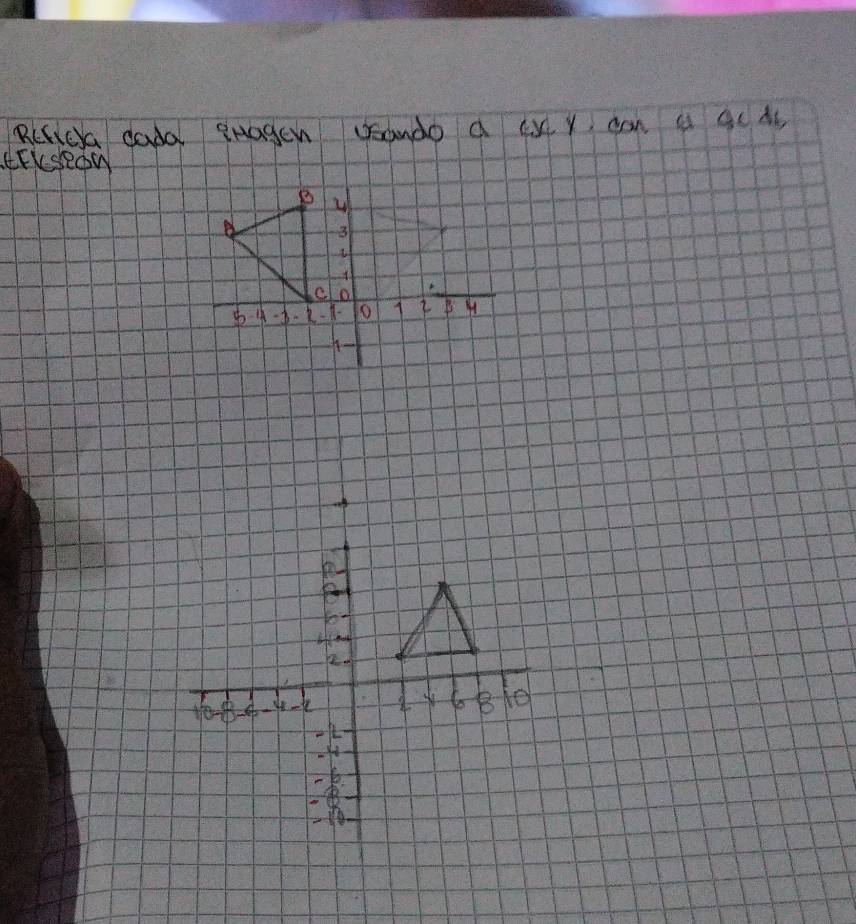 Refleja cada imagen usando a eje y. con
B 4
A 3
2
1
C 0
5 -4 -3 -2 -1 0 1 2 3 4
1
8
6
4
2
10 -8 -6 -4 -2 2 4 6 8 10
-2
-4
-6
-8